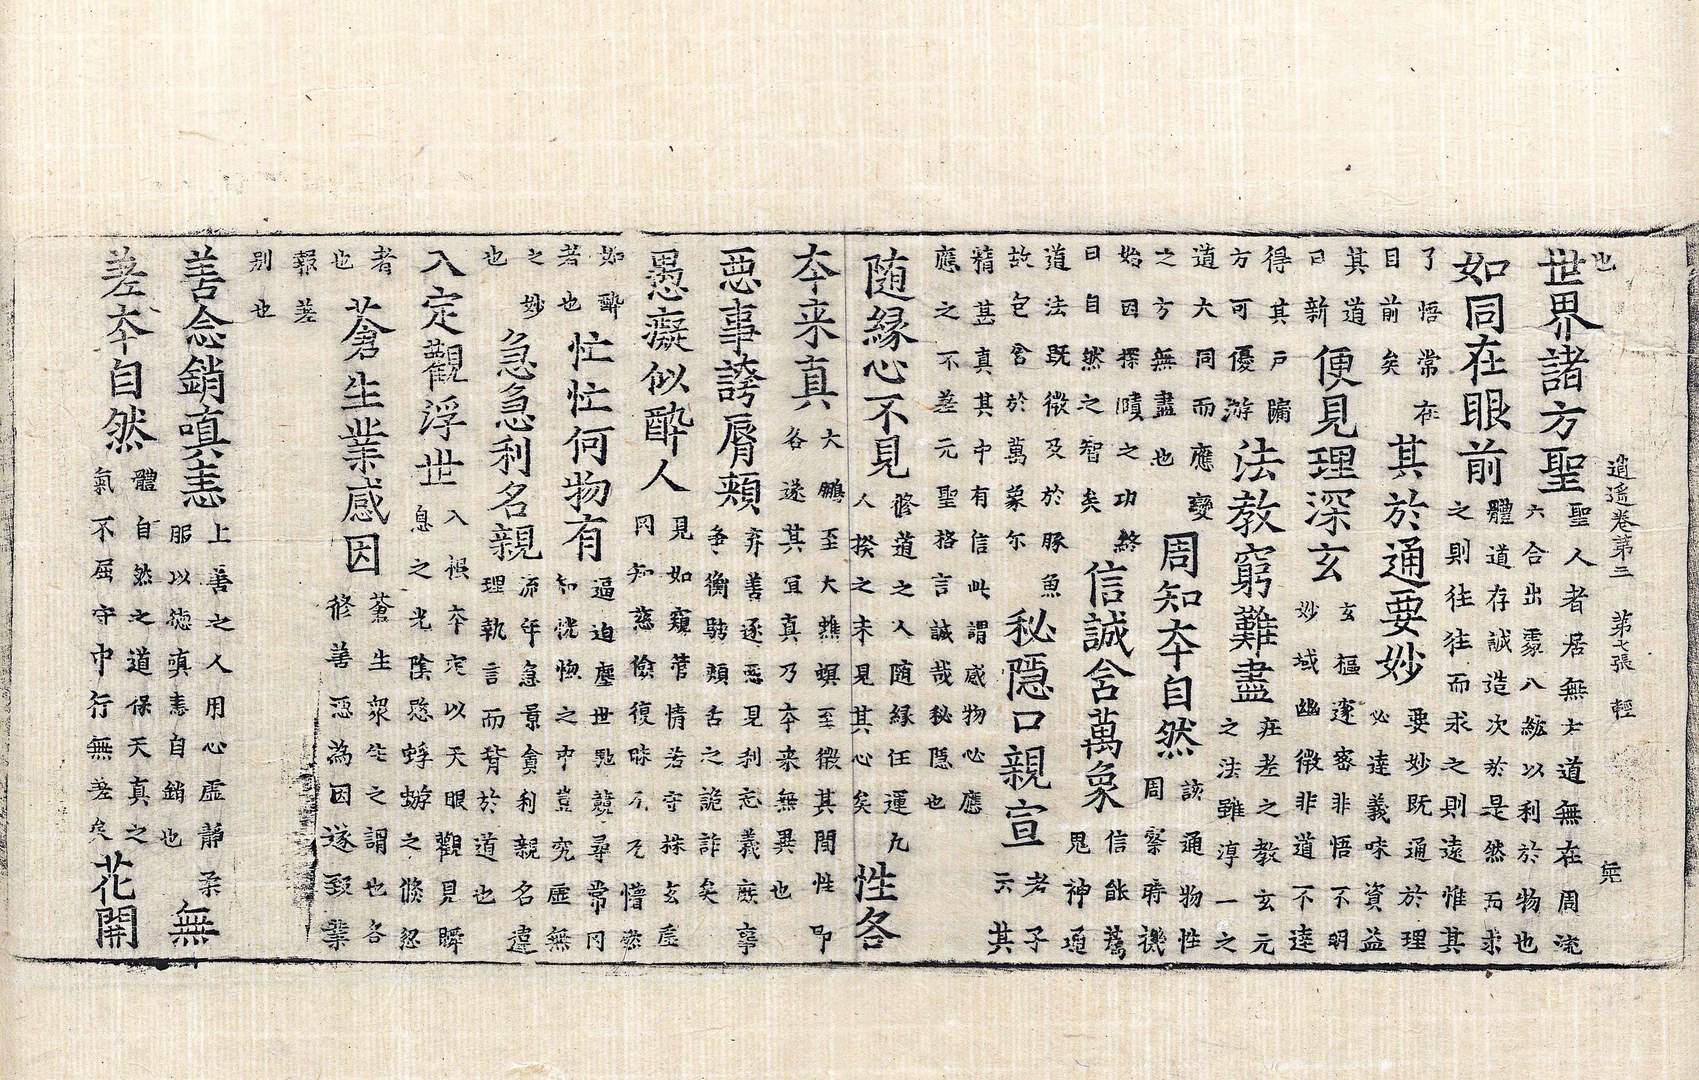 也
逍遙卷第三　第七張　輕
世界諸方聖
聖人者居無方道無在周流
六合出處八紘以利於物也
如同在眼前
體道存誠造次於是然而求
之則往往而求之則遠惟其
了悟常在
目前矣
其於通要妙
要妙既通於理
必達義味資益
其道
日新
便見理深玄
玄樞邃密非悟不明
妙域幽微非道不達
得其戶牖
方可優游
法教窮難盡
莊老之教玄元
之法雖淳一之
道大同而應變
之方無盡也
周知夲自然
該通物性
周察時機
始因探賾之功終
曰自然之智矣
信誠含萬象
信䏻
鬼神通
道法既微及於豚魚
故包含於萬象尓
秘隱口親宣
老子
云其
精甚真其中有信此謂感物必應
應之不差元聖格言誠哉秘隱也
隨緣心不見
修道之人隨緣任運凡
人揆之未見其心矣
性各
夲来真
大鵬至大鷦螟至微其間性即
各遂其冝真乃夲来無異也
惡事誇脣頰
弃善逐惡見利忘義庶事
争衡騁頰舌之詭詐矣
愚癡似醉人
見如窺管情若守株玄虛
罔知慈儉復昧懵然
如醉
者也
忙忙何物有
逼迫塵世馳競尋常罔
知恍惚之中豈究虛無
之妙
也
急急利名親
流年急景貪利親名違
理執言而背於道也
入定觀浮世
入夲定以天眼觀見瞬
息之光陰愍蜉蝣之倏忽
者
也
蒼生業感因
蒼生衆生之謂也各
修善惡為因遂致業
報差
别也
善念銷嗔恚
上善之人用心虛静柔
服以德嗔恚自銷也
無
差夲自然
體自然之道保天真之
氣不屈守中行無差矣
花開